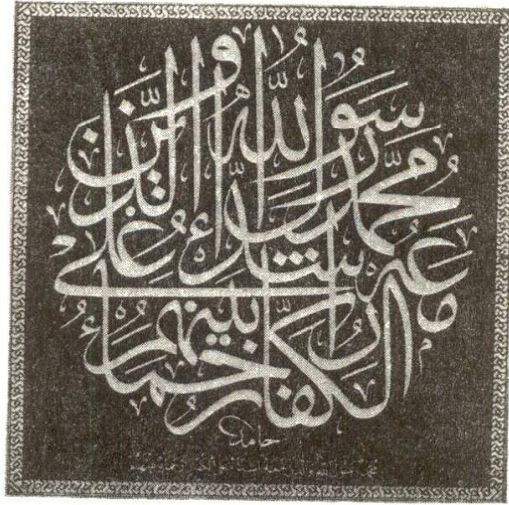 مُحَمَّدٌ رَسُولُ اللّٰهِ وَالَّذِينَ مَعَهُ أَشِدَّاءُ عَلَى الْكُفَّارِ رُحَمَاءُ بَيْنَهُمْ
حامد
محمد رسول الله والذين معه اشداء على الكفار رحماء بينهم